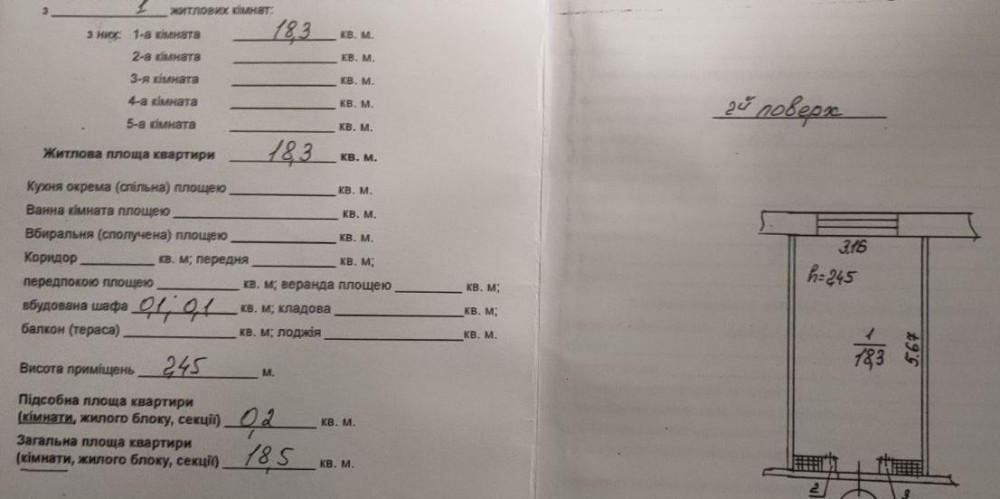 з 1 житлових кімнат:
з них: 1-а кімната 18,3 кв. м.
2-а кімната кв. м.
3-я кімната кв. м.
4-а кімната кв. м.
5-а кімната кв. м.
Житлова площа квартири 18,3 кв. м.
Кухня окрема (спільна) площею кв. м.
Ванна кімната площею кв. м.
Вбиральня (сполучена) площею кв. м.
Коридор кв. м; передня кв. м;
передпокою площею кв. м; веранда площею кв. м;
вбудована шафа 0,1; 0,1 кв. м; кладова кв. м;
балкон (тераса) кв. м; лоджія кв. м.
Висота приміщень 2,45 м.
Підсобна площа квартири
(кімнати, жилого блоку, секції) 0,2 кв. м.
Загальна площа квартири
(кімнати, жилого блоку, секції) 18,5 кв. м.
2й поверх
3.16
h=2,45
1
18,3
5.67
2
3